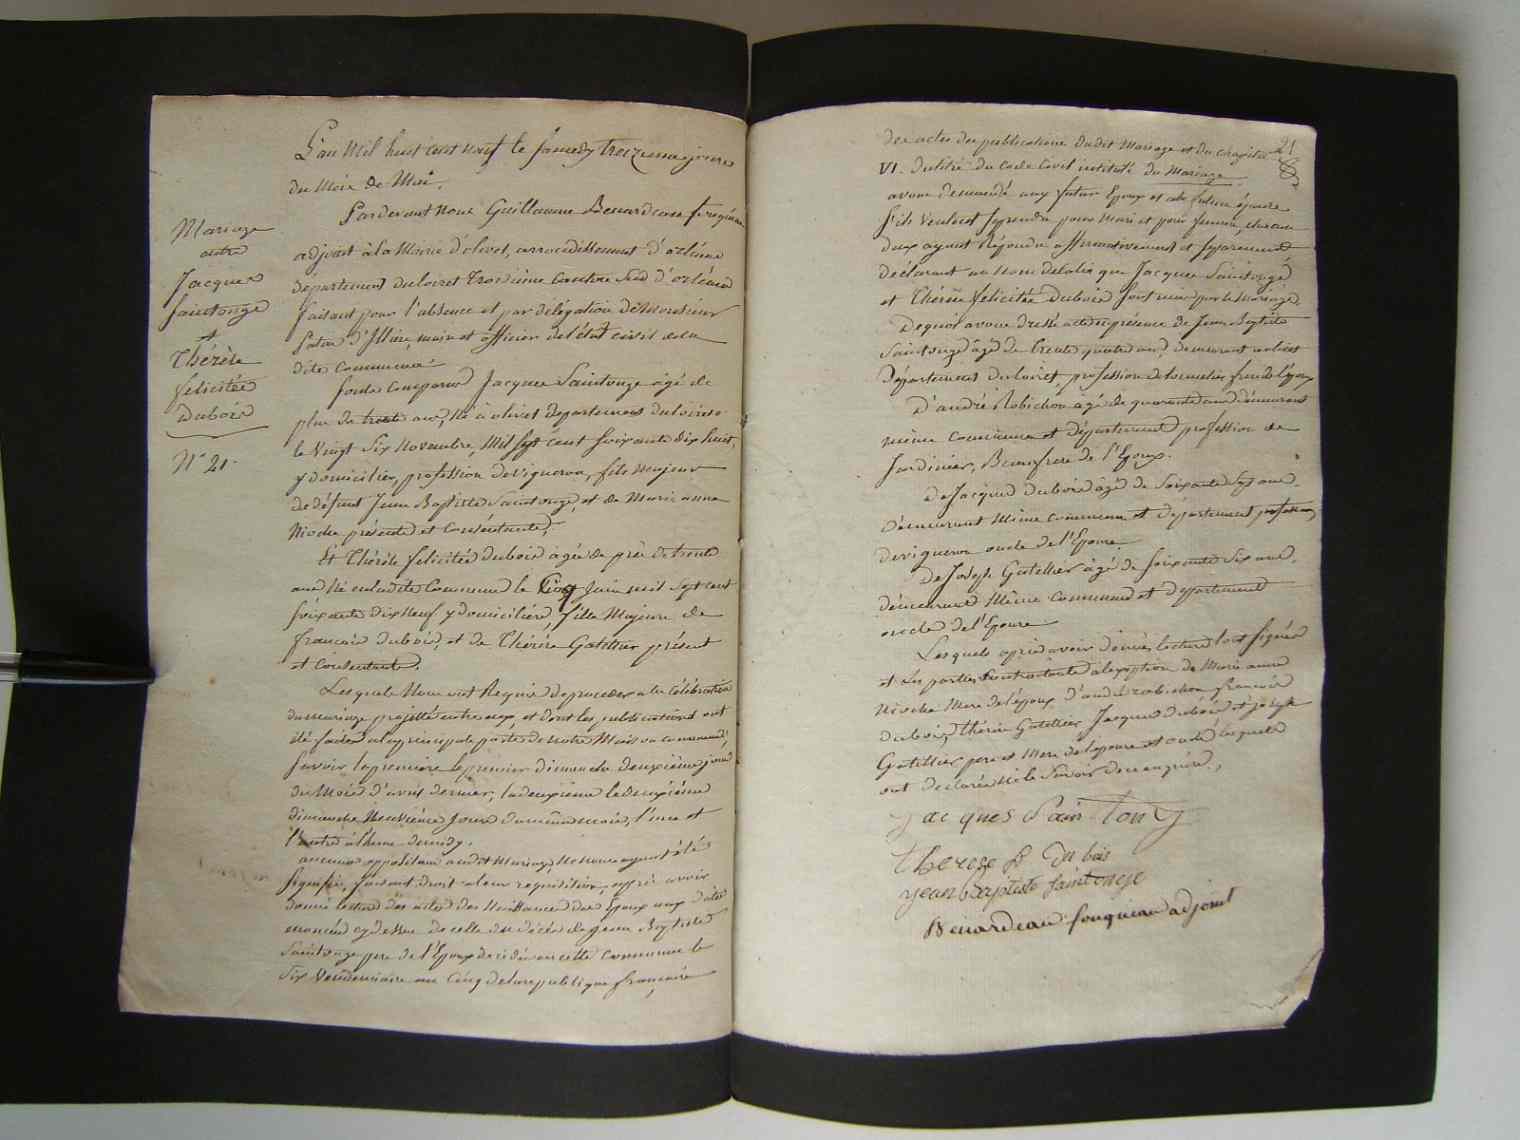 L'an Mil huit cent neuf le Samedy treizieme jour
du Mois de Mai,
Pardevant Nous Guillaume Benardeau fouqueau
adjoint à la Mairie d'olivet, arrondissement d'orléans
département du loiret Troisième Canton Sud d'orléans
faisant pour l'absence et par délégation de Monsieur
d'Illiers, maire et officier de l'état civil de la
dite Commune
Sont comparus Jacques Saintonge âgé de
plus de trente ans, Né à olivet département du loiret
le Vingt Six Novembre, Mil Sept cent Soixante dix huit,
y domicilié, profession de vigneron, fils Majeur
de défunt Jean Baptiste Saintonge, et de Marie anne
Nioche présente et Consentante,
Et Thérèse felicitée dubois agée de près de trente
ans Né en la dite Commune le Cinq Juin mil Sept cent
Soixante dix Neuf y domiciliée, fille Majeure de
françois dubois, et de Thérèse Gatellier présent
et Consentants.
Lesquels Nous ont Requis de proceder a la Célébration
du mariage projetté entre eux, et dont les publications ont
été faites a la principale porte de notre Maison commune,
Savoir la première le premier dimanche deuxième jour
du Mois d'avril dernier, la deuxième le deuxième
dimanche Neuvième Jour du même mois, l'une et
l'autre à l'heure de midy.
aucune opposition audit Mariage Ne Nous ayant été
Signifiée, faisant droit a leur requisition, après avoir
donné lecture des actes de Naissance des Epoux aux dates
énoncés cy dessus de celle du décès de Jean Baptiste
Saintonge pere de l'Epoux décédé en cette Commune le
Six Vendemiaire an Cinq de la republique française
Mariage
entre
Jacques
Saintonge
&
Thérèse
felicitée
Dubois
N° 21.
21
des actes de publications dudit Mariage et du chapitre
VI. du titre du Code Civil intitulé du Mariage.
avons demandé aux futur Epoux et a la future épouse
S'ils veulent Se prendre pour Mari et pour femme, chacun
deux ayant Répondu affirmativement et Séparement
déclarons au Nom de la loi que Jacques Saintonge
et Thérèse félicitée Dubois Sont unis par le Mariage.
De quoi avons dressé acte en présence de Jean Baptiste
Saintonge âgé de trente quatre ans, demeurant
Département du loiret, profession de tonnelier frere de l'époux
D'andré Robichon agé de quarante ans demeurant
même commune et département profession de
Jardinier, Beaufrere de l'Epoux.
De Jacques dubois âgé de Soixante Sept ans.
demeurant Même commune et département profession
de vigneron oncle de l'Epouse
De Joseph Gatellier âgé de Soixante Six ans,
demeurant Même commune et département
oncle de l'Epouse
Lesquels après avoir donné lecture l'ont Signés
et les parties Contractante a l'exeption de Marie anne
Nioche Mere de l'époux d'andré robichon françois
dubois, thérèse Gatellier Jacques dubois, et joseph
Gatellier pere et Mere de l'épouse et oncle lesquels
ont declarés Ne le Savoir de ce enquis.,
Jacques Sain tong
therese f dubois
jean baptiste saintonge
Benardeau fouqueau adjoint